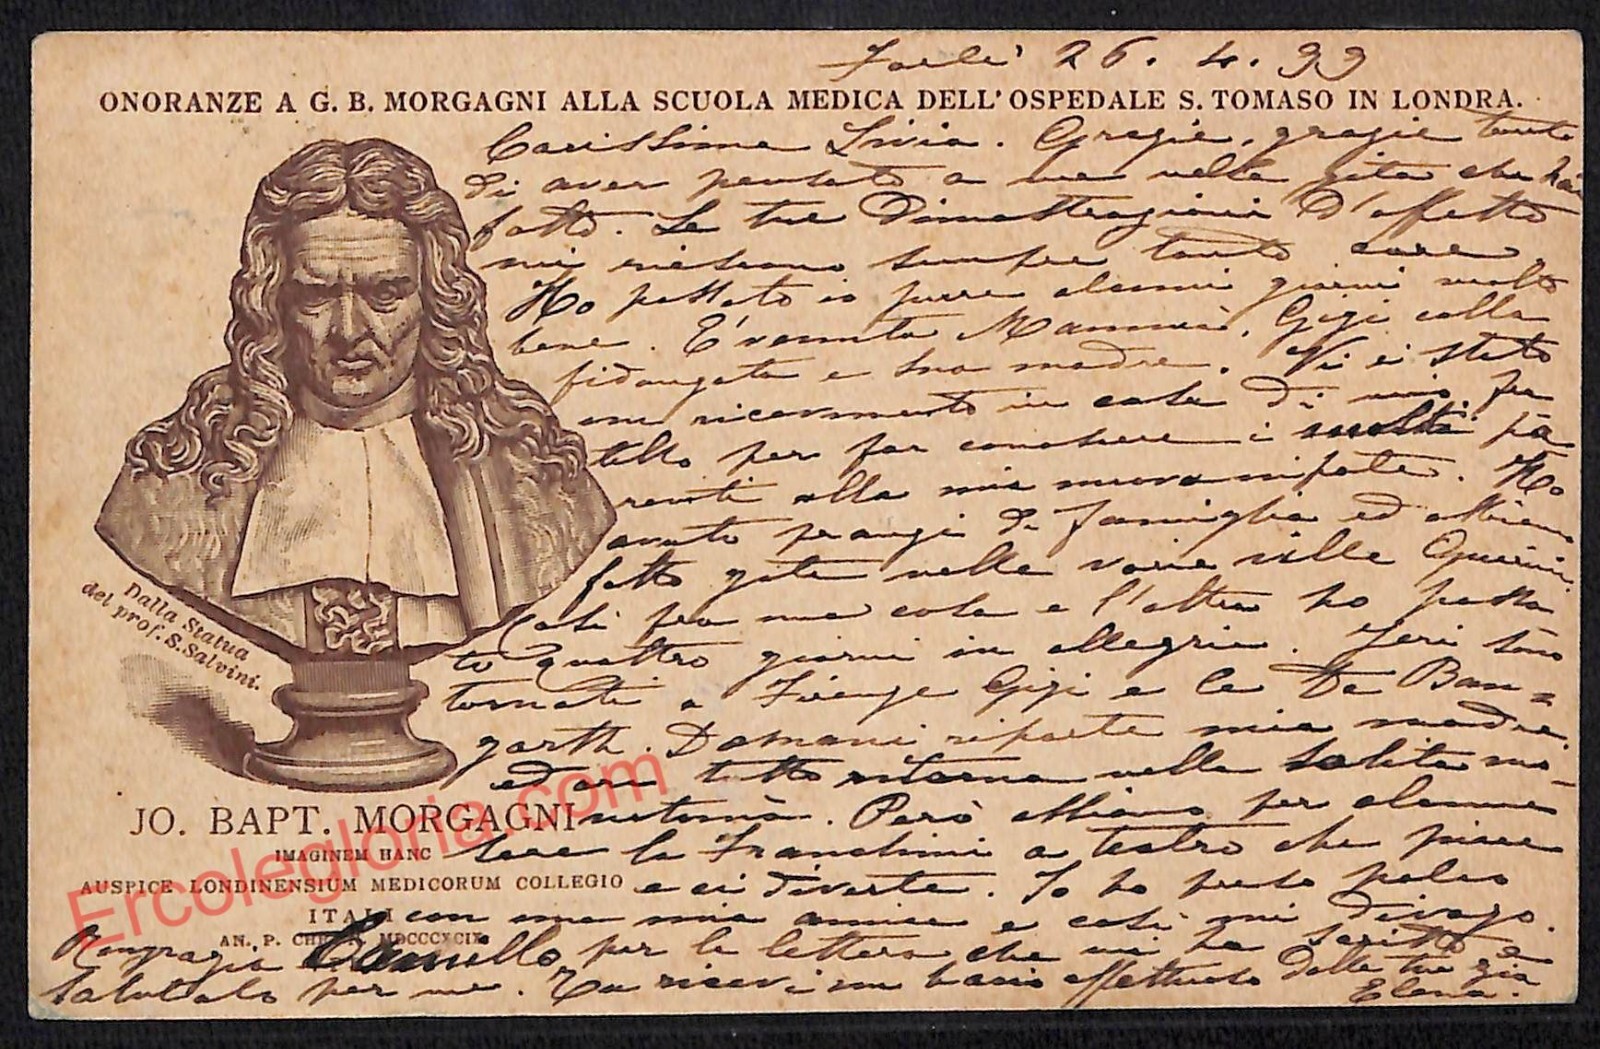 Forlì 26. 4. 99
ONORANZE A G. B. MORGAGNI ALLA SCUOLA MEDICA DELL'OSPEDALE S. TOMASO IN LONDRA.
Carissima Livia. Grazie, grazie tanto
di aver pensato a me nella gita che hai
fatto. Le tue dimostrazioni d'affetto
mi riescono sempre tanto care.
Ho passato io pure alcuni giorni molto
bene. È venuta Mammà, Gigi colla
fidanzata e sua madre. Vi è stato
un ricevimento in casa di mio fra
tello per far conoscere i molti pa
renti alla mia nuova nipote. Ho
avuto pranzi di famiglia ed abbiamo
fatto gite nelle varie ville
Così fra una cosa e l'altra ho passa
to quattro giorni in allegria. Jeri sono
tornati a Firenze Gigi e le De Ban=
garth. Domani riparte mia madre,
ed ora tutto ritorna nella solita mo-
notonia. Però abbiamo per alcune
sere la Franchini a teatro che piace
e ci diverte. Io ho preso palco
con una mia amica e così mi divago.
Ringrazia Camillo per la lettera che mi ha scritto e
salutalo per me. Tu ricevi un bacio affettuoso dalla tua zia
Elena.
Dalla Statua
del prof. S. Salvini.
JO. BAPT. MORGAGNI
IMAGINEM HANC
AUSPICE LONDINENSIUM MEDICORUM COLLEGIO
ITALI
AN. P. CHR. N. MDCCCXCIX
Ercolegloria.com